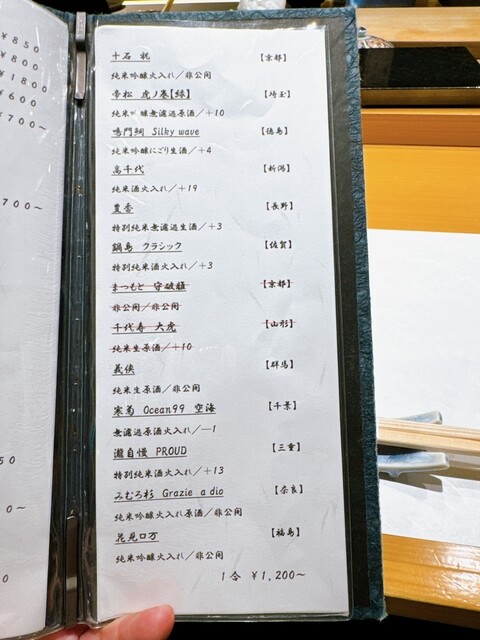 ¥850
¥800
¥1800
¥600
¥700〜
700〜
50
0〜
0
十石 祝 【京都】
純米吟醸火入れ/非公開
帝松 虎ノ巻【緑】 【埼玉】
純米吟醸無濾過原酒/+10
鳴門鯛 Silky wave 【徳島】
純米吟醸にごり生酒/+4
高千代 【新潟】
純米酒火入れ/+19
豊香 【長野】
特別純米無濾過生酒/+3
鍋島 クラシック 【佐賀】
特別純米酒火入れ/+3
まつもと 守破離 【京都】
非公開/非公開
千代寿 大虎 【山形】
純米生原酒/+10
義侠 【群馬】
純米生原酒/非公開
寒菊 Ocean99 空海 【千葉】
無濾過原酒火入れ/−1
瀧自慢 PROUD 【三重】
特別純米酒火入れ/+13
みむろ杉 Grazie a dio 【奈良】
純米吟醸火入れ原酒/非公開
花見ロ万 【福島】
純米吟醸火入れ/非公開
1合 ¥1,200〜